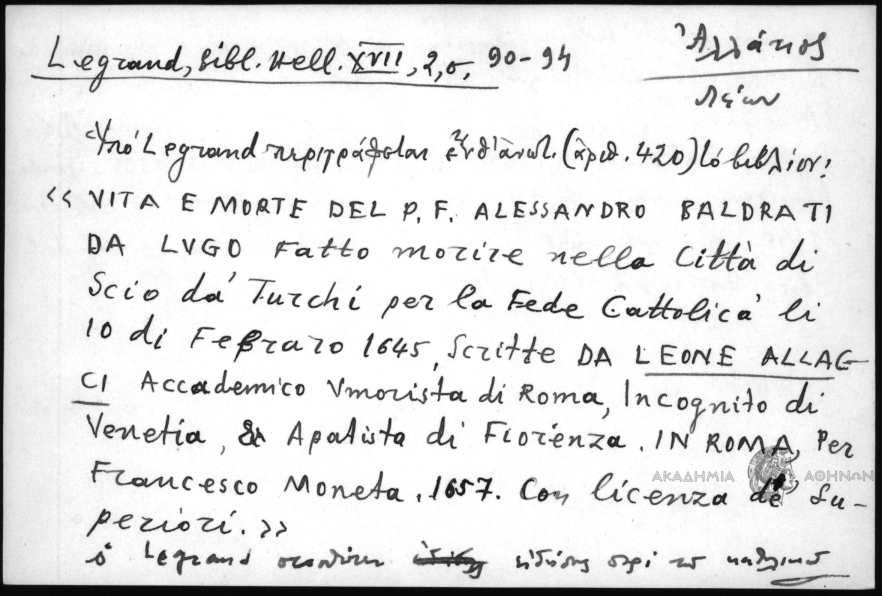 Legrand, Bibl. Hell. XVII, 2, σ, 90-94
Ἀλλάτιος
Λέων
Ὑπό Legrand περιγράφεται (ἀριθ. 420) τό βιβλίον:
«VITA E MORTE DEL P. F. ALESSANDRO BALDRATI
DA LVGO Fatto morire nella Città di
Scio da' Turchi per la Fede Cattolica' li
10 di Febraro 1645, Scritte DA LEONE ALLAC-
CI Accademico Vmorista di Roma, Incognito di
Venetia, & Apatista di Fiorenza. IN ROMA, Per
Francesco Moneta. 1657. Con licenza de' Su-
periori.»
ὁ Legrand περὶ τοῦ
ΑΚΑΔΗΜΙΑ ΑΘΗΝΩΝ